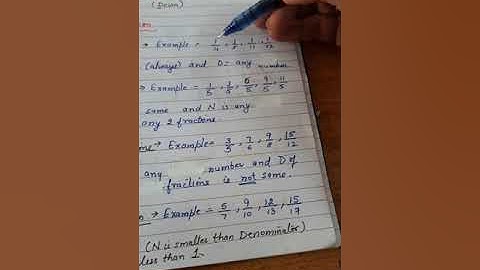 (Down)
→ Example = 1/4, 1/7, 1/11, 1/12
(always) and D = any number
→ Example = 1/5, 3/5, 6/5, 9/5, 11/5
same and N is any
any 2 fractions.
→ Example = 3/3, 7/6, 9/8, 15/12
any number and D of
fractions is not same.
→ Example = 5/7, 9/10, 12/13, 15/17
(N is smaller than Denominator)
less than 1.